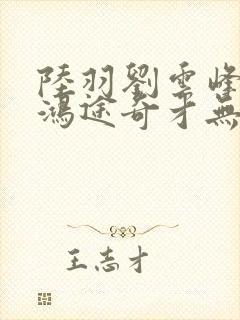 陸羽劉雲峰
鴻途奇才無
王志才